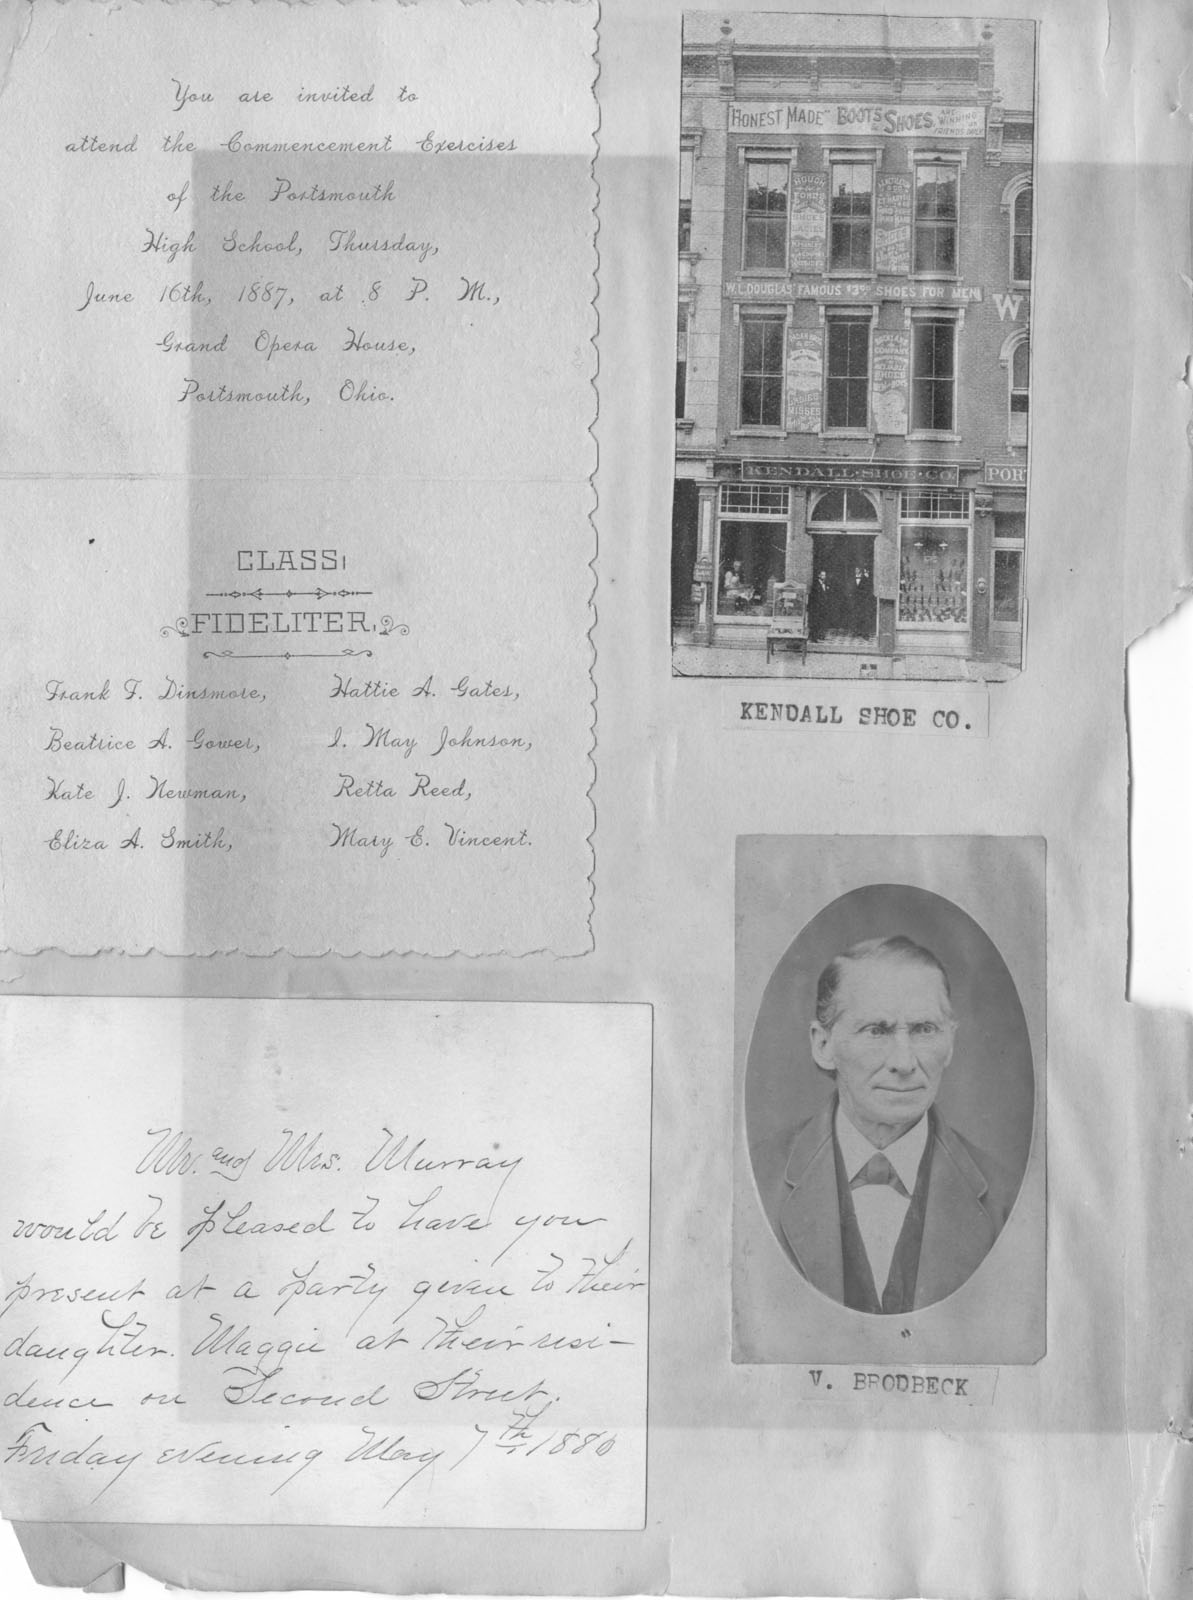 You are invited to
attend the Commencement Exercises
of the Portsmouth
High School, Thursday,
June 16th, 1887, at 8 P. M.,
Grand Opera House,
Portsmouth, Ohio.
CLASS:
FIDELITER.
Frank F. Dinsmore, Hattie A. Gates,
Beatrice A. Gower, I. May Johnson,
Kate J. Newman, Retta Reed,
Eliza A. Smith, Mary E. Vincent.
Mr. and Mrs. Murray
would be pleased to have you
present at a party given to their
daughter. Maggie at their resi-
dence on Second Street.
Friday evening May 7th 1886
"HONEST MADE" BOOTS & SHOES ARE WINNING US FRIENDS DAILY
HOUGH & FORD'S
SHOES
LADIES
W.L. DOUGLAS FAMOUS $3.00 SHOES FOR MEN
W
COMPANY
RELIABLE
SHOES
LADIES
MISSES
KENDALL·SHOE·CO.
POR
KENDALL SHOE CO.
V. BRODBECK